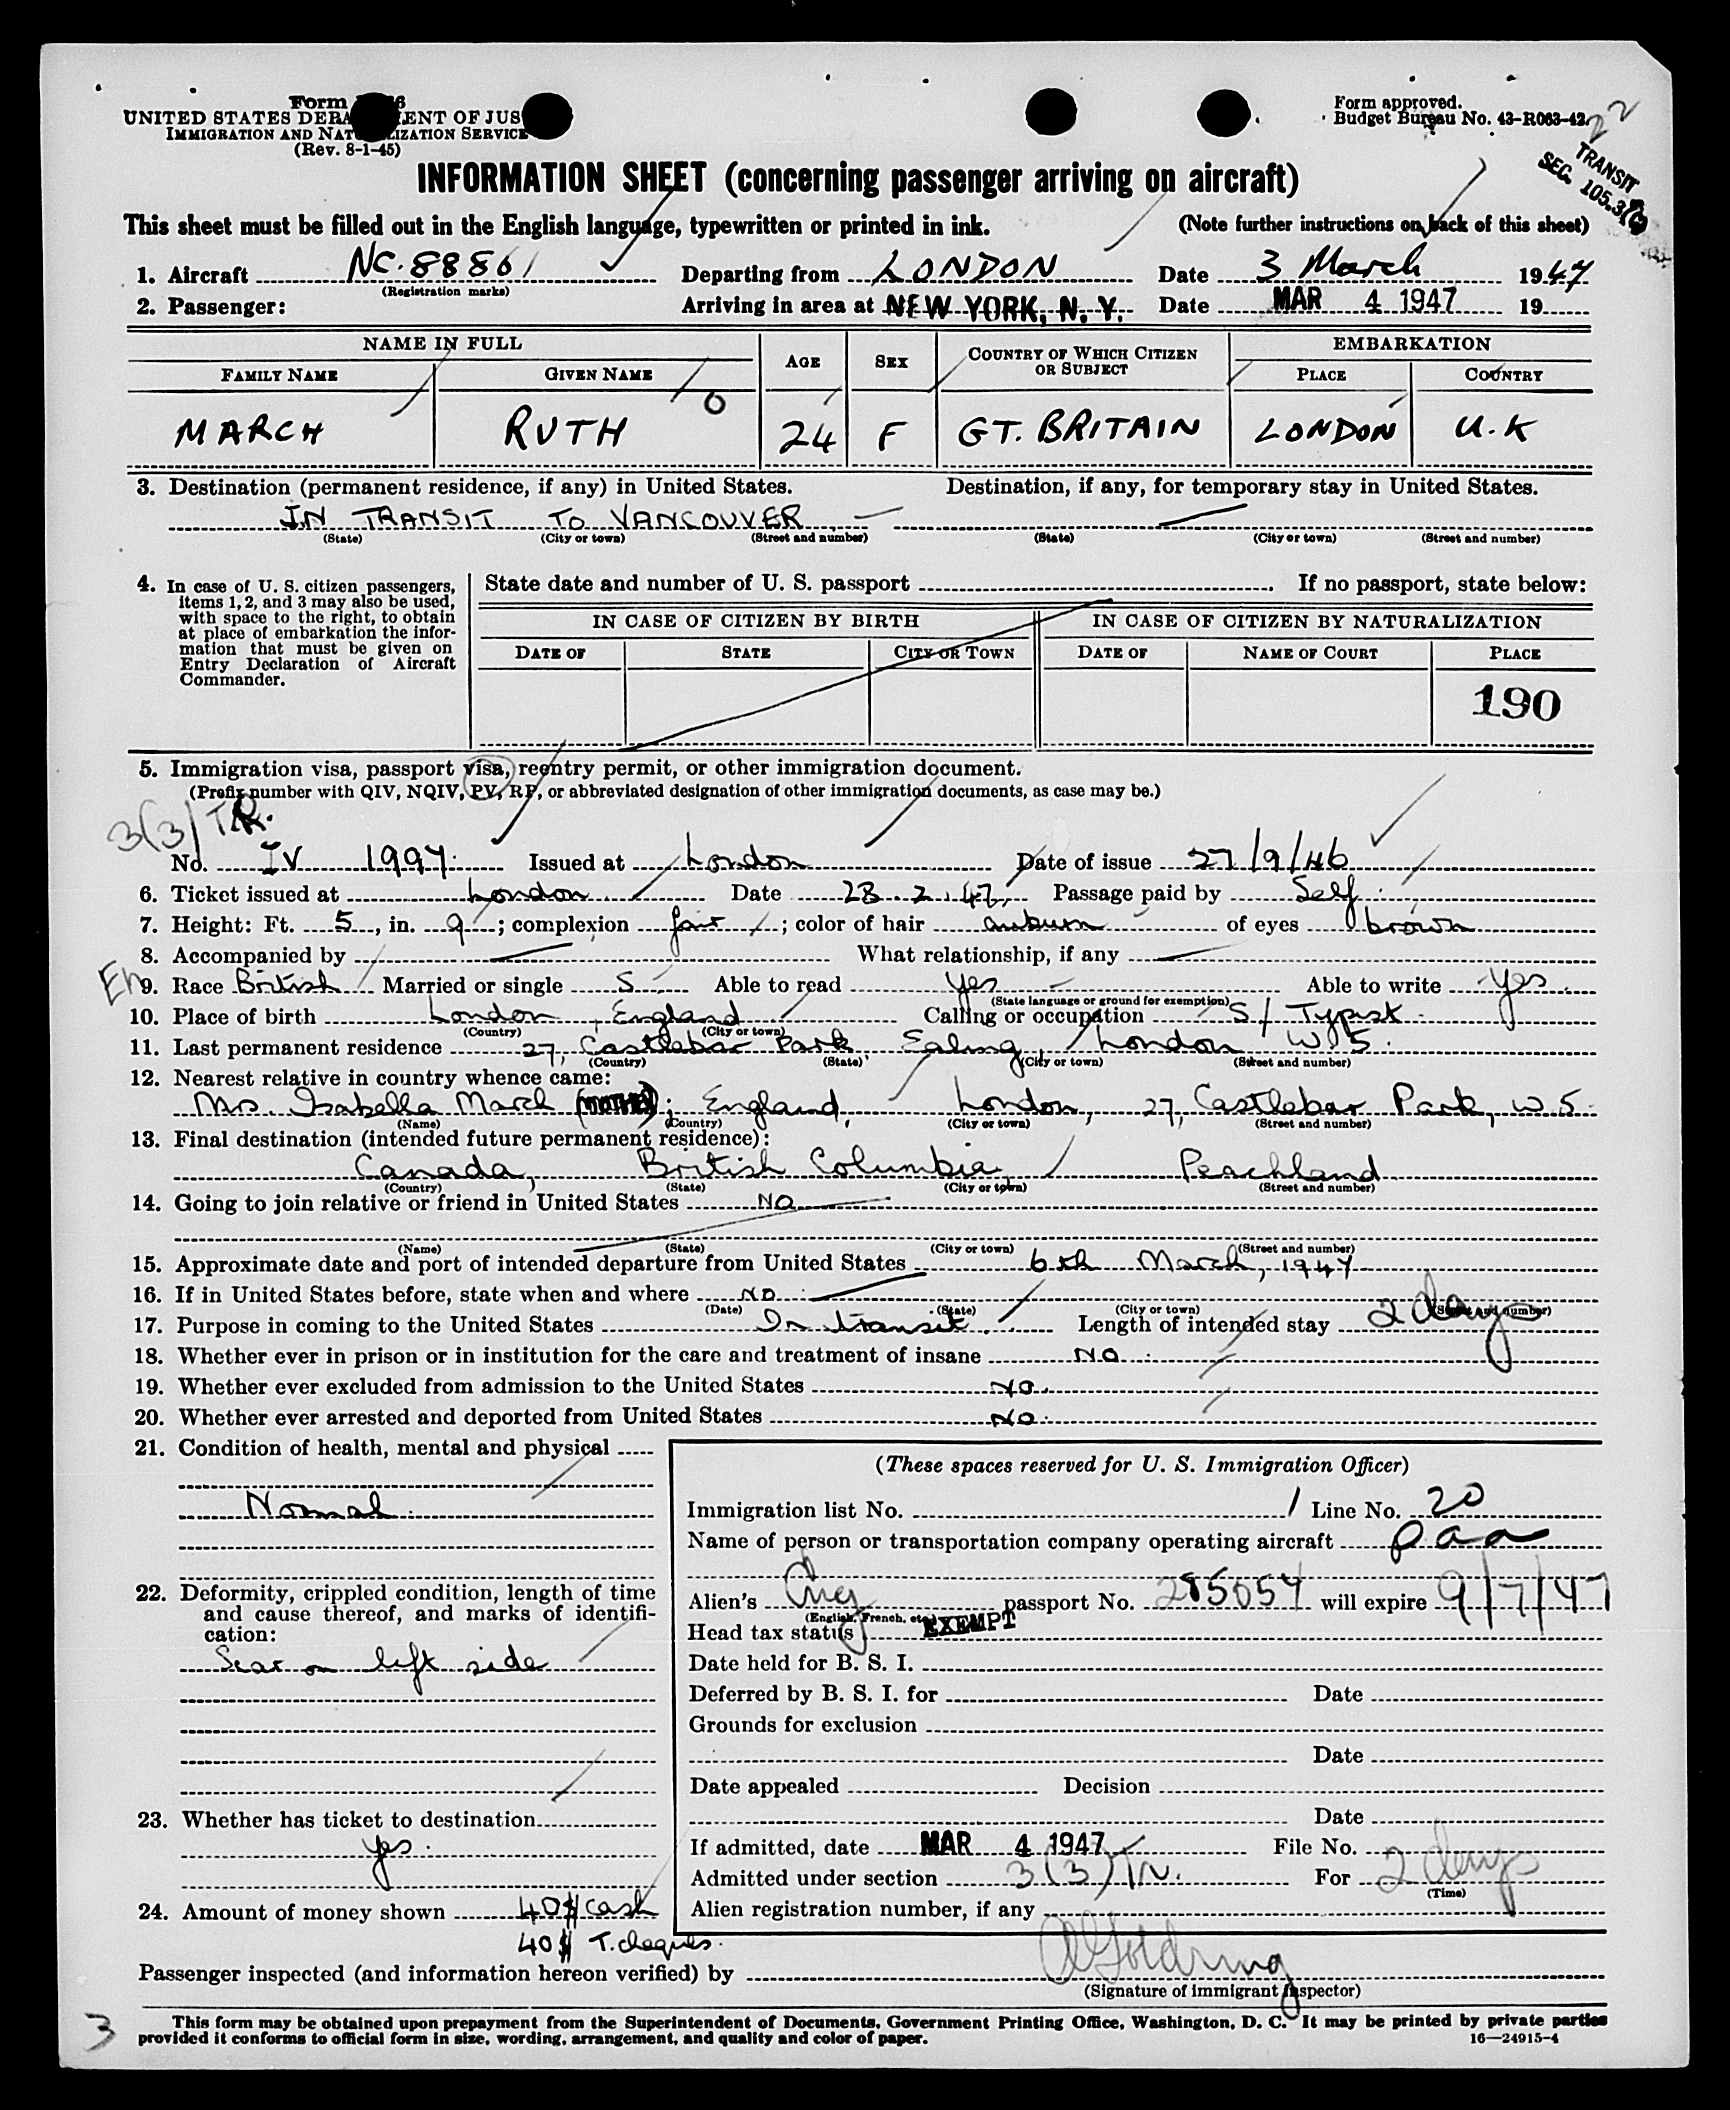 Form
UNITED STATES DEPA ENT OF JUS
IMMIGRATION AND NAT IZATION SERVICE
(Rev. 8-1-45)
Form approved.
Budget Bureau No. 43-R063-42.
22
TRANSIT
SEC. 105.3
INFORMATION SHEET (concerning passenger arriving on aircraft)
This sheet must be filled out in the English language, typewritten or printed in ink. (Note further instructions on back of this sheet)
1. Aircraft NC.88861 Departing from LONDON Date 3 March 1947
(Registration marks)
2. Passenger: Arriving in area at NEW YORK, N. Y. Date MAR 4 1947 19
NAME IN FULL AGE SEX COUNTRY OF WHICH CITIZEN OR SUBJECT EMBARKATION
FAMILY NAME GIVEN NAME PLACE COUNTRY
MARCH RUTH O 24 F GT. BRITAIN LONDON U.K
3. Destination (permanent residence, if any) in United States. Destination, if any, for temporary stay in United States.
IN TRANSIT TO VANCOUVER
(State) (City or town) (Street and number) (State) (City or town) (Street and number)
4. In case of U. S. citizen passengers,
items 1, 2, and 3 may also be used,
with space to the right, to obtain
at place of embarkation the infor-
mation that must be given on
Entry Declaration of Aircraft
Commander.
State date and number of U. S. passport . If no passport, state below:
IN CASE OF CITIZEN BY BIRTH IN CASE OF CITIZEN BY NATURALIZATION
DATE OF STATE CITY OR TOWN DATE OF NAME OF COURT PLACE
190
5. Immigration visa, passport visa, reentry permit, or other immigration document.
(Prefix number with QIV, NQIV, PV, RP, or abbreviated designation of other immigration documents, as case may be.)
3(3)TR.
No. IV 1997. Issued at London Date of issue 27/9/46
6. Ticket issued at London Date 28.2.47. Passage paid by Self.
7. Height: Ft. 5, in. 9; complexion fair; color of hair auburn of eyes brown
8. Accompanied by What relationship, if any
En
9. Race British Married or single S. Able to read Yes Able to write Yes.
(State language or ground for exemption)
10. Place of birth London, England Calling or occupation S/Typist.
(Country) (City or town)
11. Last permanent residence 27, Castlebar Park, Ealing, London W.5.
(Country) (State) (City or town) (Street and number)
12. Nearest relative in country whence came:
Mrs. Isabella March (MOTHER); England, London, 27, Castlebar Park, W.5.
(Name) (Country) (City or town) (Street and number)
13. Final destination (intended future permanent residence):
Canada, British Columbia, Peachland
(Country) (State) (City or town) (Street and number)
14. Going to join relative or friend in United States NO
(Name) (State) (City or town) (Street and number)
15. Approximate date and port of intended departure from United States 6th March, 1947
16. If in United States before, state when and where NO
(Date) (State) (City or town) (Street and number)
17. Purpose in coming to the United States In transit. Length of intended stay 2 days
18. Whether ever in prison or in institution for the care and treatment of insane NO.
19. Whether ever excluded from admission to the United States NO.
20. Whether ever arrested and deported from United States NO.
21. Condition of health, mental and physical
Normal.
22. Deformity, crippled condition, length of time
and cause thereof, and marks of identifi-
cation:
Scar on left side
23. Whether has ticket to destination
Yes.
24. Amount of money shown 40$ cash
40$ T. cheques.
(These spaces reserved for U. S. Immigration Officer)
Immigration list No. 1 Line No. 20
Name of person or transportation company operating aircraft paa
Alien's Eng passport No. 285054 will expire 9/7/47
(English, French, etc.)
Head tax status EXEMPT
Date held for B. S. I.
Deferred by B. S. I. for Date
Grounds for exclusion
Date
Date appealed Decision
Date
If admitted, date MAR 4 1947 File No.
Admitted under section 3(3)Tr. For 2 days
(Time)
Alien registration number, if any
Passenger inspected (and information hereon verified) by
(Signature of immigrant inspector)
This form may be obtained upon prepayment from the Superintendent of Documents, Government Printing Office, Washington, D. C. It may be printed by private parties
provided it conforms to official form in size, wording, arrangement, and quality and color of paper. 16—24915-4
3